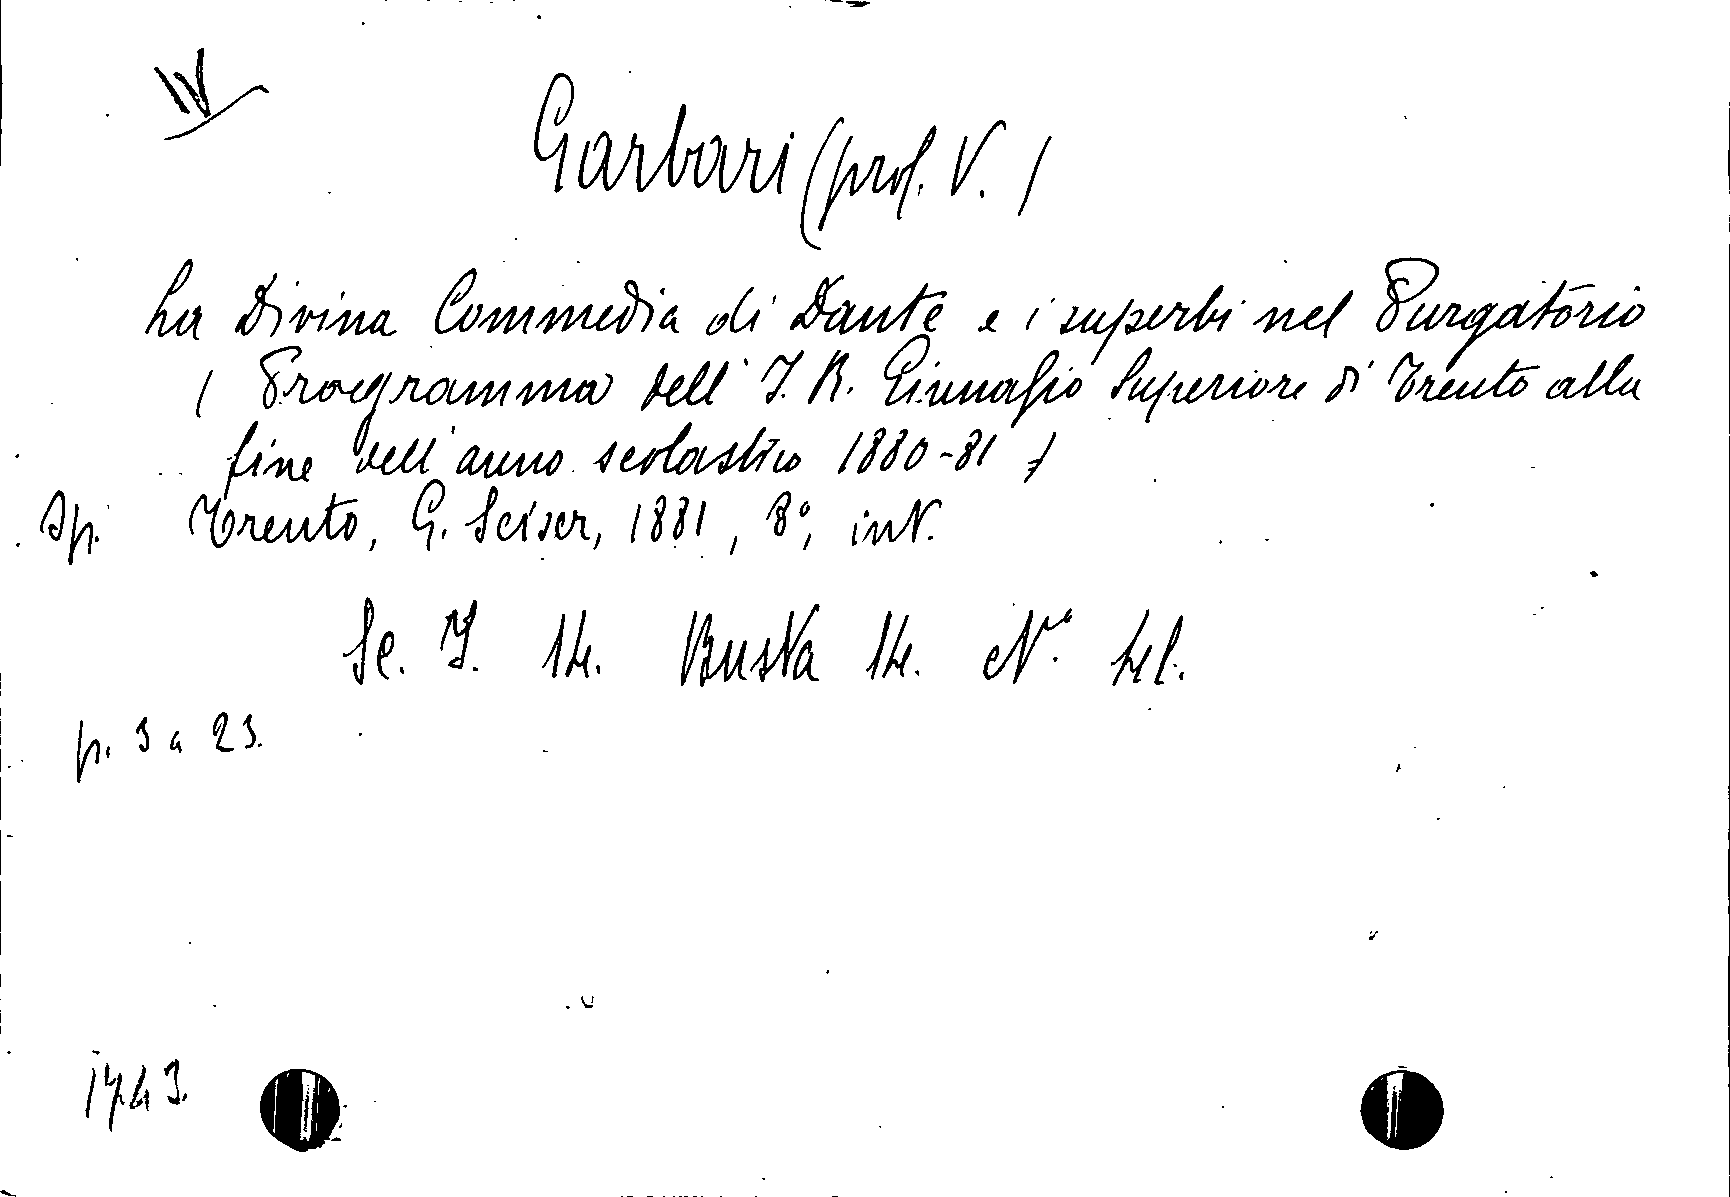 IV
Garbari (prof. V.)
La Divina Commedia di Dante e i superbi nel Purgatorio
(Programma dell' I. R. Ginnasio Superiore di Trento alla
fine dell' anno scolastico 1880-81)
Sp. Trento, G. Seiser, 1881, 8°, int.
Sc. I. 14. Busta 14. N.°
p. 3 a 23.